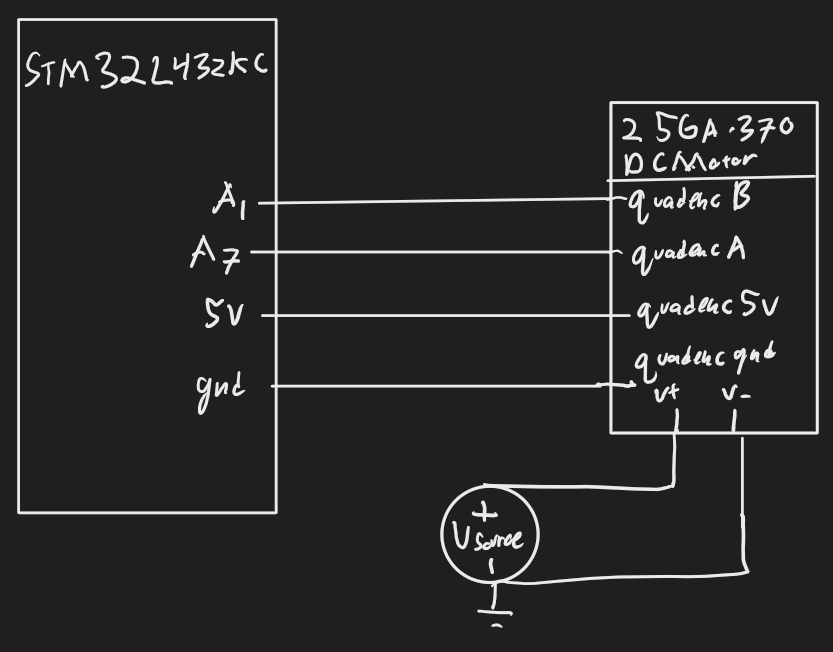 STM32L432KC
A1
A7
5V
gnd
25GA-370
DC Motor
quadenc B
quadenc A
quadenc 5V
quadenc gnd
V+ V-
+
V source
-